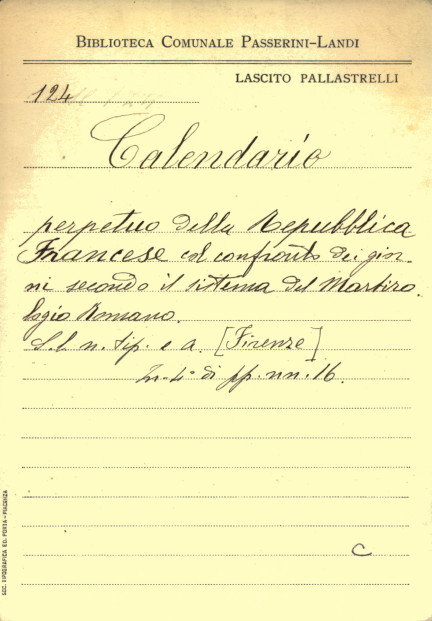 BIBLIOTECA COMUNALE PASSERINI-LANDI
LASCITO PALLASTRELLI
124
Calendario
perpetuo della Repubblica
Francese col confronto dei gior-
ni secondo il sistema del Martiro
logio Romano.
S. l. n. tip. e a. [Firenze]
In-4° di pp. nn. 16.
C
SOC. TIPOGRAFICA ED. PORTA - PIACENZA